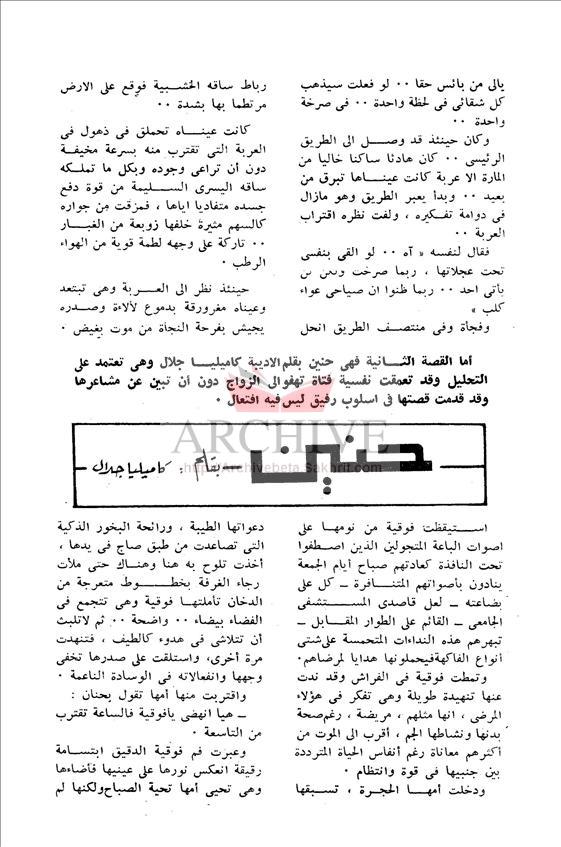 يالى من بائس حقا ٠٠ لو فعلت سيذهب
كل شقائى فى لحظة واحدة ٠٠ فى صرخة
واحدة ٠٠
وكان حينئذ قد وصل الى الطريق
الرئيسى ٠٠ كان هادئا ساكنا خاليا من
المارة الا عربة كانت عيناها تبرق من
بعيد ٠٠ وبدأ يعبر الطريق وهو مازال
فى دوامة تفكيره ، ولفت نظره اقتراب
العربة ٠٠
فقال لنفسه « آه ٠٠ لو القى بنفسى
تحت عجلاتها ، ربما صرخت ولكن لن
يأتى احد ٠٠ ربما ظنوا ان صياحى عواء
كلب »
وفجأة وفى منتصف الطريق انحل
رباط ساقه الخشبية فوقع على الارض
مرتطما بها بشدة ٠٠
كانت عيناه تحملق فى ذهول فى
العربة التى تقترب منه بسرعة مخيفة
دون أن تراعى وجوده وبكل ما تملكه
ساقه اليسرى السليمة من قوة دفع
جسده متفاديا اياها ، فمزقت من جواره
كالسهم مثيرة خلفها زوبعة من الغبار
٠٠ تاركة على وجهه لطمة قوية من الهواء
الرطب ٠
حينئذ نظر الى العربة وهى تبتعد
وعيناه مغرورقة بدموع لألاءة وصدره
يجيش بفرحة النجاة من موت بغيض ٠
أما القصة الثانية فهى حنين بقلم الاديبة كاميليا جلال وهى تعتمد على
التحليل وقد تعمقت نفسية فتاة تهفو الى الزواج دون أن تبين عن مشاعرها
وقد قدمت قصتها فى اسلوب رفيق ليس فيه افتعال ٠
ARCHIVE
http://Archivebeta.Sakhrit.com
حنين
بقلم : كاميليا جلال
استيقظت فوقية من نومها على
اصوات الباعة المتجولين الذين اصطفوا
تحت النافذة كعادتهم صباح أيام الجمعة
ينادون بأصواتهم المتنافرة ـ كل على
بضاعته ـ لعل قاصدى المستشفى
الجامعى ـ القائم على الطوار المقابل ـ
تبهرهم هذه النداءات المتحمسة على شتى
أنواع الفاكهة فيحملونها هدايا لمرضاهم٠
وتمطت فوقية فى الفراش وقد ندت
عنها تنهيدة طويلة وهى تفكر فى هؤلاء
المرضى ، انها مثلهم ، مريضة ، رغم صحة
بدنها ونشاطها الجم ، أقرب الى الموت من
أكثرهم معاناة رغم أنفاس الحياة المترددة
بين جنبيها فى قوة وانتظام ٠
ودخلت أمها الحجرة ، تسبقها
دعواتها الطيبة ، ورائحة البخور الذكية
التى تصاعدت من طبق صاج فى يدها ،
أخذت تلوح به هنا وهناك حتى ملأت
رجاء الغرفة بخطوط متعرجة من
الدخان تأملتها فوقية وهى تتجمع فى
الفضاء بيضاء ٠٠ واضحة ٠٠ ثم لاتلبث
أن تتلاشى فى هدوء كالطيف ، فتنهدت
مرة أخرى، واستلقت على صدرها تخفى
وجهها وانفعالاته فى الوسادة الناعمة ٠
واقتربت منها أمها تقول بحنان :
ـ هيا انهضى يافوقية فالساعة تقترب
من التاسعة ٠
وعبرت فم فوقية الدقيق ابتسامة
رقيقة انعكس نورها على عينيها فأضاءها
وهى تحيى أمها تحية الصباح ولكنها لم